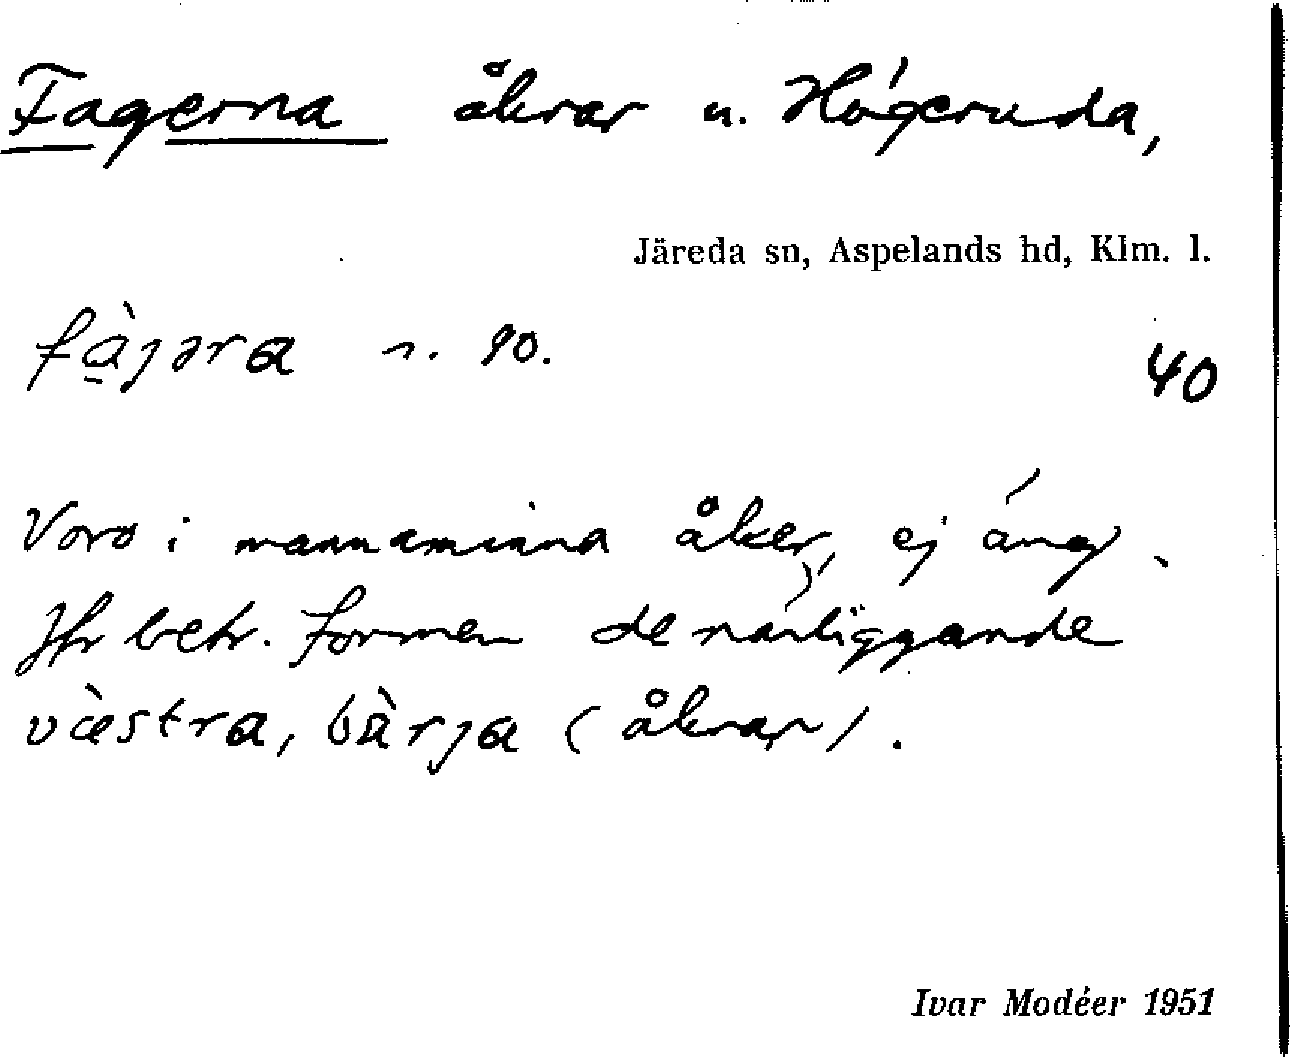 Fagerna åkrar u. Högeruda,
Järeda sn, Aspelands hd, Klm. l.
fàjəra n. 90.
40
Voro i mannaminna åker, ej äng.
Jfr betr. formen de närliggande
væ̀stra, bàrja (åkrar).
Ivar Modéer 1951